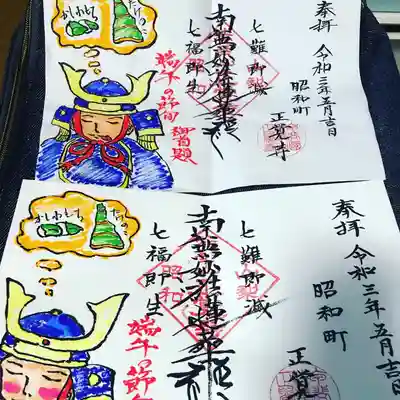 奉拝
令和三年五月吉日
昭和町
正覚寺
七難即滅
南無妙法蓮華経
七福即生
端午の節句
御首題
たけのこ
かしわもち
奉拝
令和三年五月吉日
昭和町
正覚
七難即滅
南無妙法蓮華経
七福即生
端午の節句
たけのこ
かしわもち